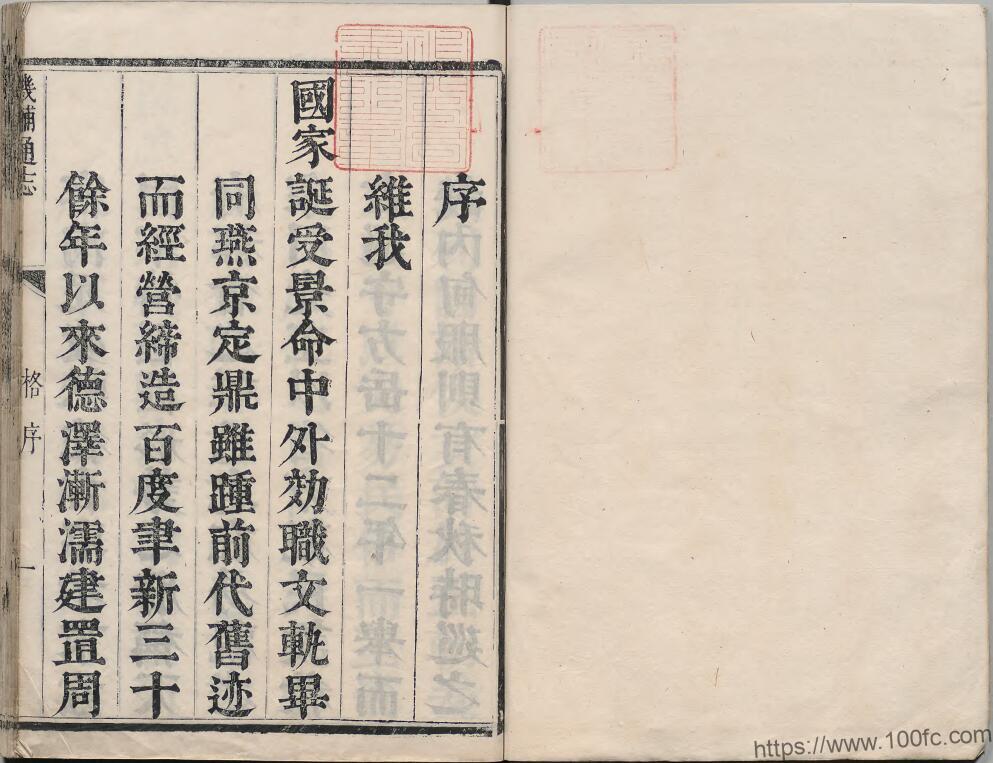 序
維我
國家誕受景命中外効職文軌畢
同燕京定鼎雖踵前代舊迹
而經營締造百度聿新三十
餘年以來德澤漸濡建置周
畿輔通志
格序
一
https://www.100fc.com